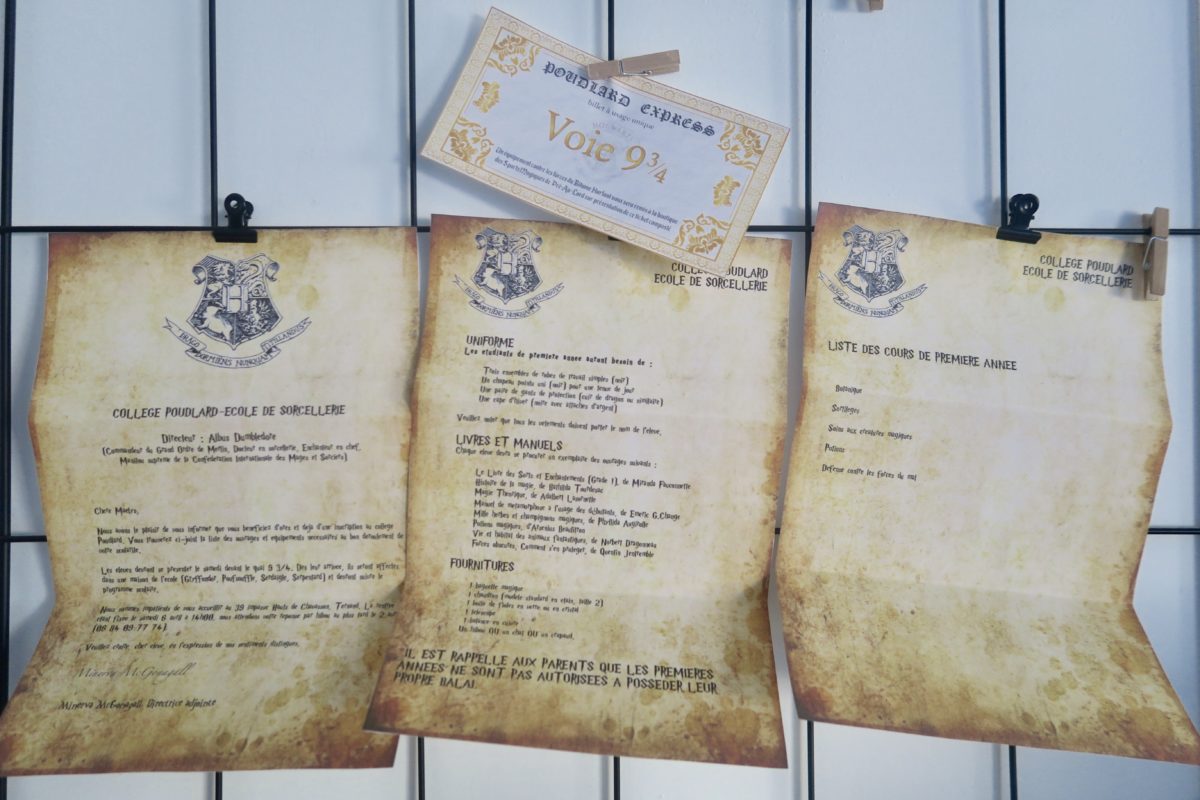 POUDLARD EXPRESS
billet à usage unique
Voie 9¾
Un équipement contre les forces du vous sera remis à la boutique
des Sports Magiques de Pré-Au-Lard sur présentation de ce ticket composté
DRACO DORMIENS NUNQUAM TITILLANDUS
COLLEGE POUDLARD-ECOLE DE SORCELLERIE
Directeur : Albus Dumbledore
(Commandeur du Grand Ordre de Merlin, Docteur en sorcellerie, Enchanteur en chef,
Manitou supreme de la Confederation Internationale des Mages et Sorciers)
Chere
Nous avons le plaisir de vous informer que vous beneficiez d'ores et deja d'une inscription au college
Poudlard. Vous trouverez ci-joint la liste des ouvrages et equipements necessaires au bon deroulement de
votre scolarite.
Les eleves devront se presenter le samedi devant le quai 9 3/4. Des leur arrivee, ils seront affectes
dans une maison de l'ecole (Gryffondor, Poufsouffle, Serdaigle, Serpentard) et devront suivre le
programme scolaire.
Nous sommes impatients de vous accueillir au 39 impasse Hauts de La rentree
etant fixee le samedi 6 avril a 14h00, nous attendons votre reponse par hibou au plus tard le 2
Veuillez croire, cher eleve, en l'expression de nos sentiments distingues.
Minerva McGonagall
Minerva McGonagall, Directrice adjointe
DRACO DORMIENS NUNQUAM TITILLANDUS
COLLEGE POUDLARD
ECOLE DE SORCELLERIE
UNIFORME
Les etudiants de premiere annee auront besoin de :
Trois ensembles de robes de travail simples (noir)
Un chapeau pointu uni (noir) pour une tenue de jour
Une paire de gants de protection (cuir de dragon ou similaire)
Une cape d'hiver (noire avec attaches d'argent)
Veuillez noter que tous les vetements doivent porter le nom de l'eleve.
LIVRES ET MANUELS
Chaque eleve devra se procurer un exemplaire des ouvrages suivants :
Le Livre des Sorts et Enchantements (Grade 1), de Miranda Fauconnette
Histoire de la magie, de Bathilda Tourdesac
Magie Theorique, de Adalbert Lasornette
Manuel de metamorphose a l'usage des débutants, de Emeric G.Change
Mille herbes et champignons magiques, de Phyllida Augirolle
Potions magiques, d'Arsenius Beaulitron
Vie et habitat des animaux fantastiques, de Norbert Dragonneau
Forces obscures, Comment s'en proteger, de Quentin Jentremble
FOURNITURES
1 baguette magique
1 chaudron (modele standard en etain, taille 2)
1 boite de fioles en verre ou en cristal
1 telescope
1 balance en cuivre
Un hibou OU un chat OU un crapaud.
IL EST RAPPELLE AUX PARENTS QUE LES PREMIERES
ANNEES NE SONT PAS AUTORISEES A POSSEDER LEUR
PROPRE BALAI.
DRACO DORMIENS NUNQUAM TITILLANDUS
COLLEGE POUDLARD
ECOLE DE SORCELLERIE
LISTE DES COURS DE PREMIERE ANNEE
Botanique
Sortileges
Soins aux creatures magiques
Potions
Defense contre les forces du mal